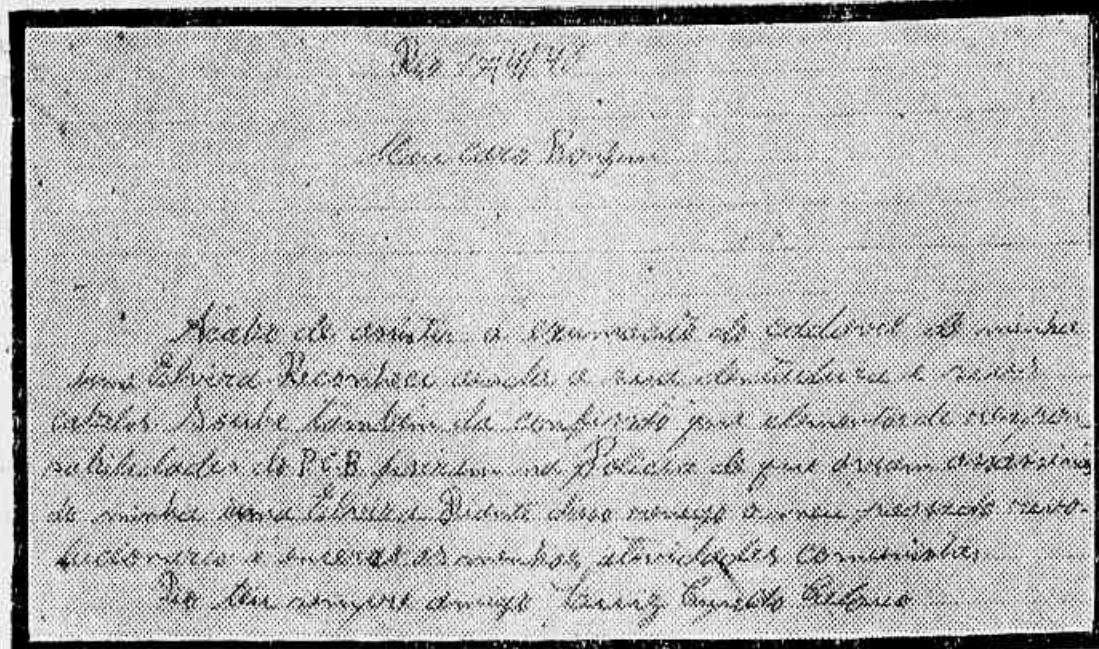 Rio 17/4/40
Meu caro Bonfim
Acabo de assistir a exumação do cadaver de minha
irmã Elvira. Reconheci ainda a sua dentadura e seus
cabelos. Soube tambem da confissão que elementos de respon-
sabilidades do PCB fizeram na Policia de que aviam assassinado
de minha irmã Elvira. Diante disso renego a meu passado revo-
lucionario e encerro as minhas atividades comunistas.
Do teu sempre amigo Luiz Cupello Colonio